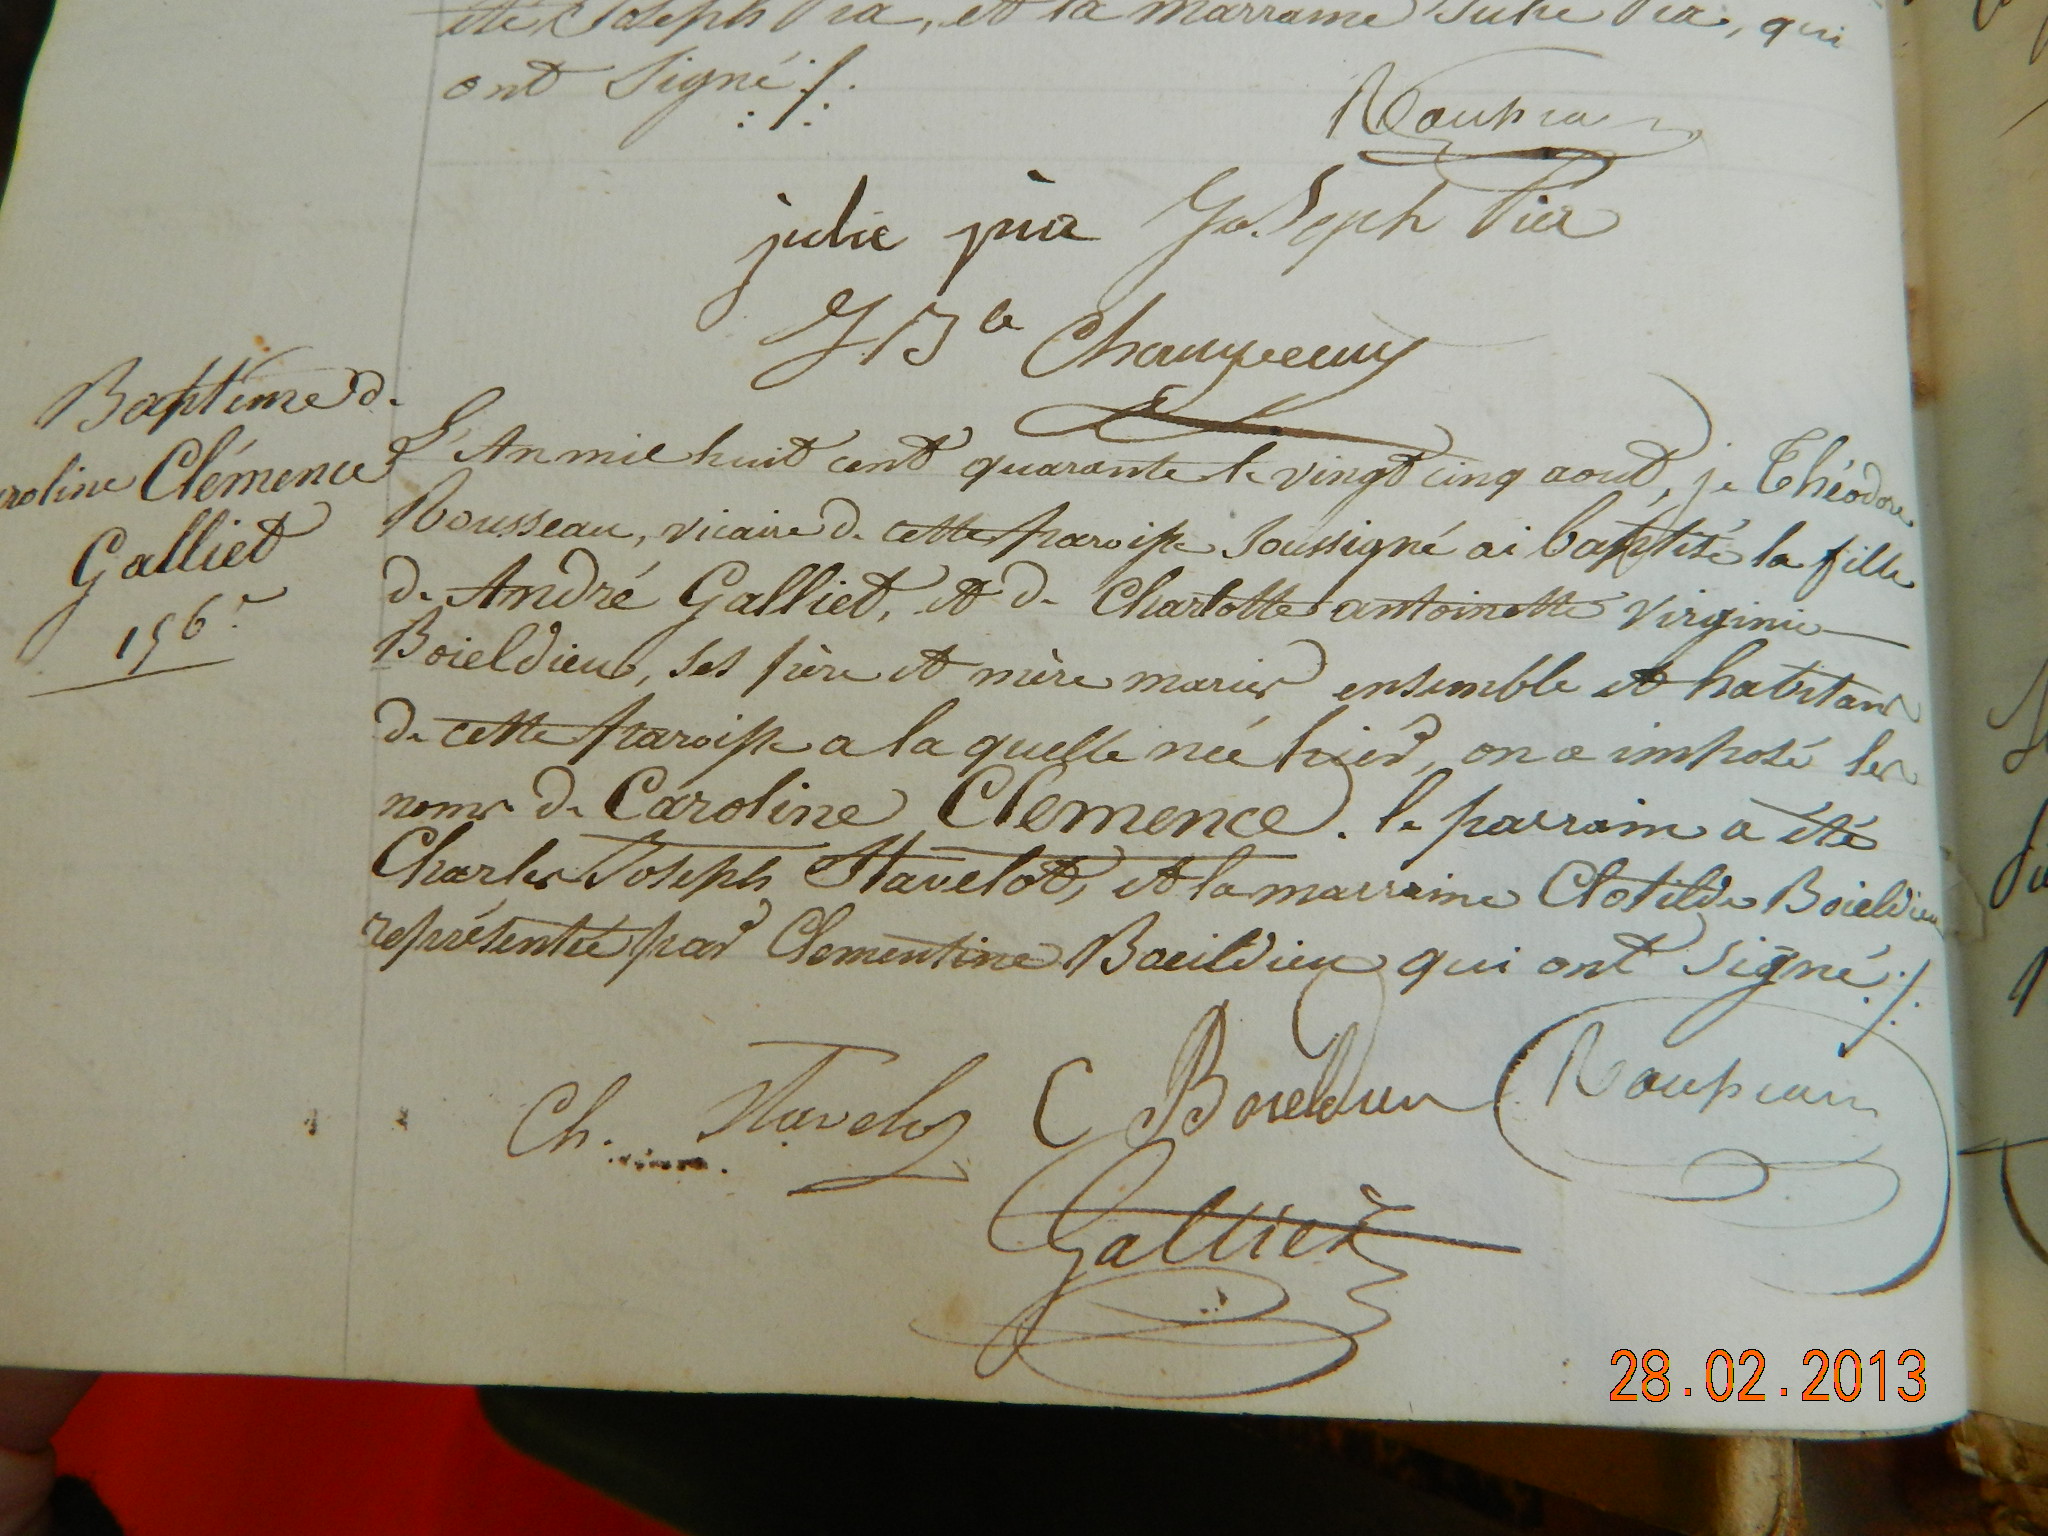 été Joseph Pia, et la marraine Julie Pia, qui
ont signé ./.
Rousseau
julie pia Joseph Pia
J Bte
Baptême de
roline Clémence
Galliet
156e
L'An mil huit cent quarante le vingt cinq aout, je Théodore
Rousseau, vicaire de cette paroisse soussigné ai baptisé la fille
de André Galliet, et de Charlotte antoinette virginie
Boieldieu, ses père et mère mariés ensemble et habitans
de cette paroisse a la quelle née hier, on a imposé les
noms de Caroline Clemence. le parrain a été
Charles Joseph Stavelot, et la marraine Clotilde Boieldieu
représentée par Clementine Boeildieu qui ont signé ./.
Ch. Stavelot C Boieldieu Rousseau
Galliet
28.02.2013